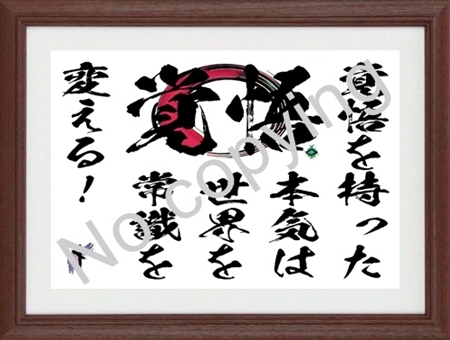 覚悟
覚悟を持った
本気は
世界を
常識を
変える！
No copying